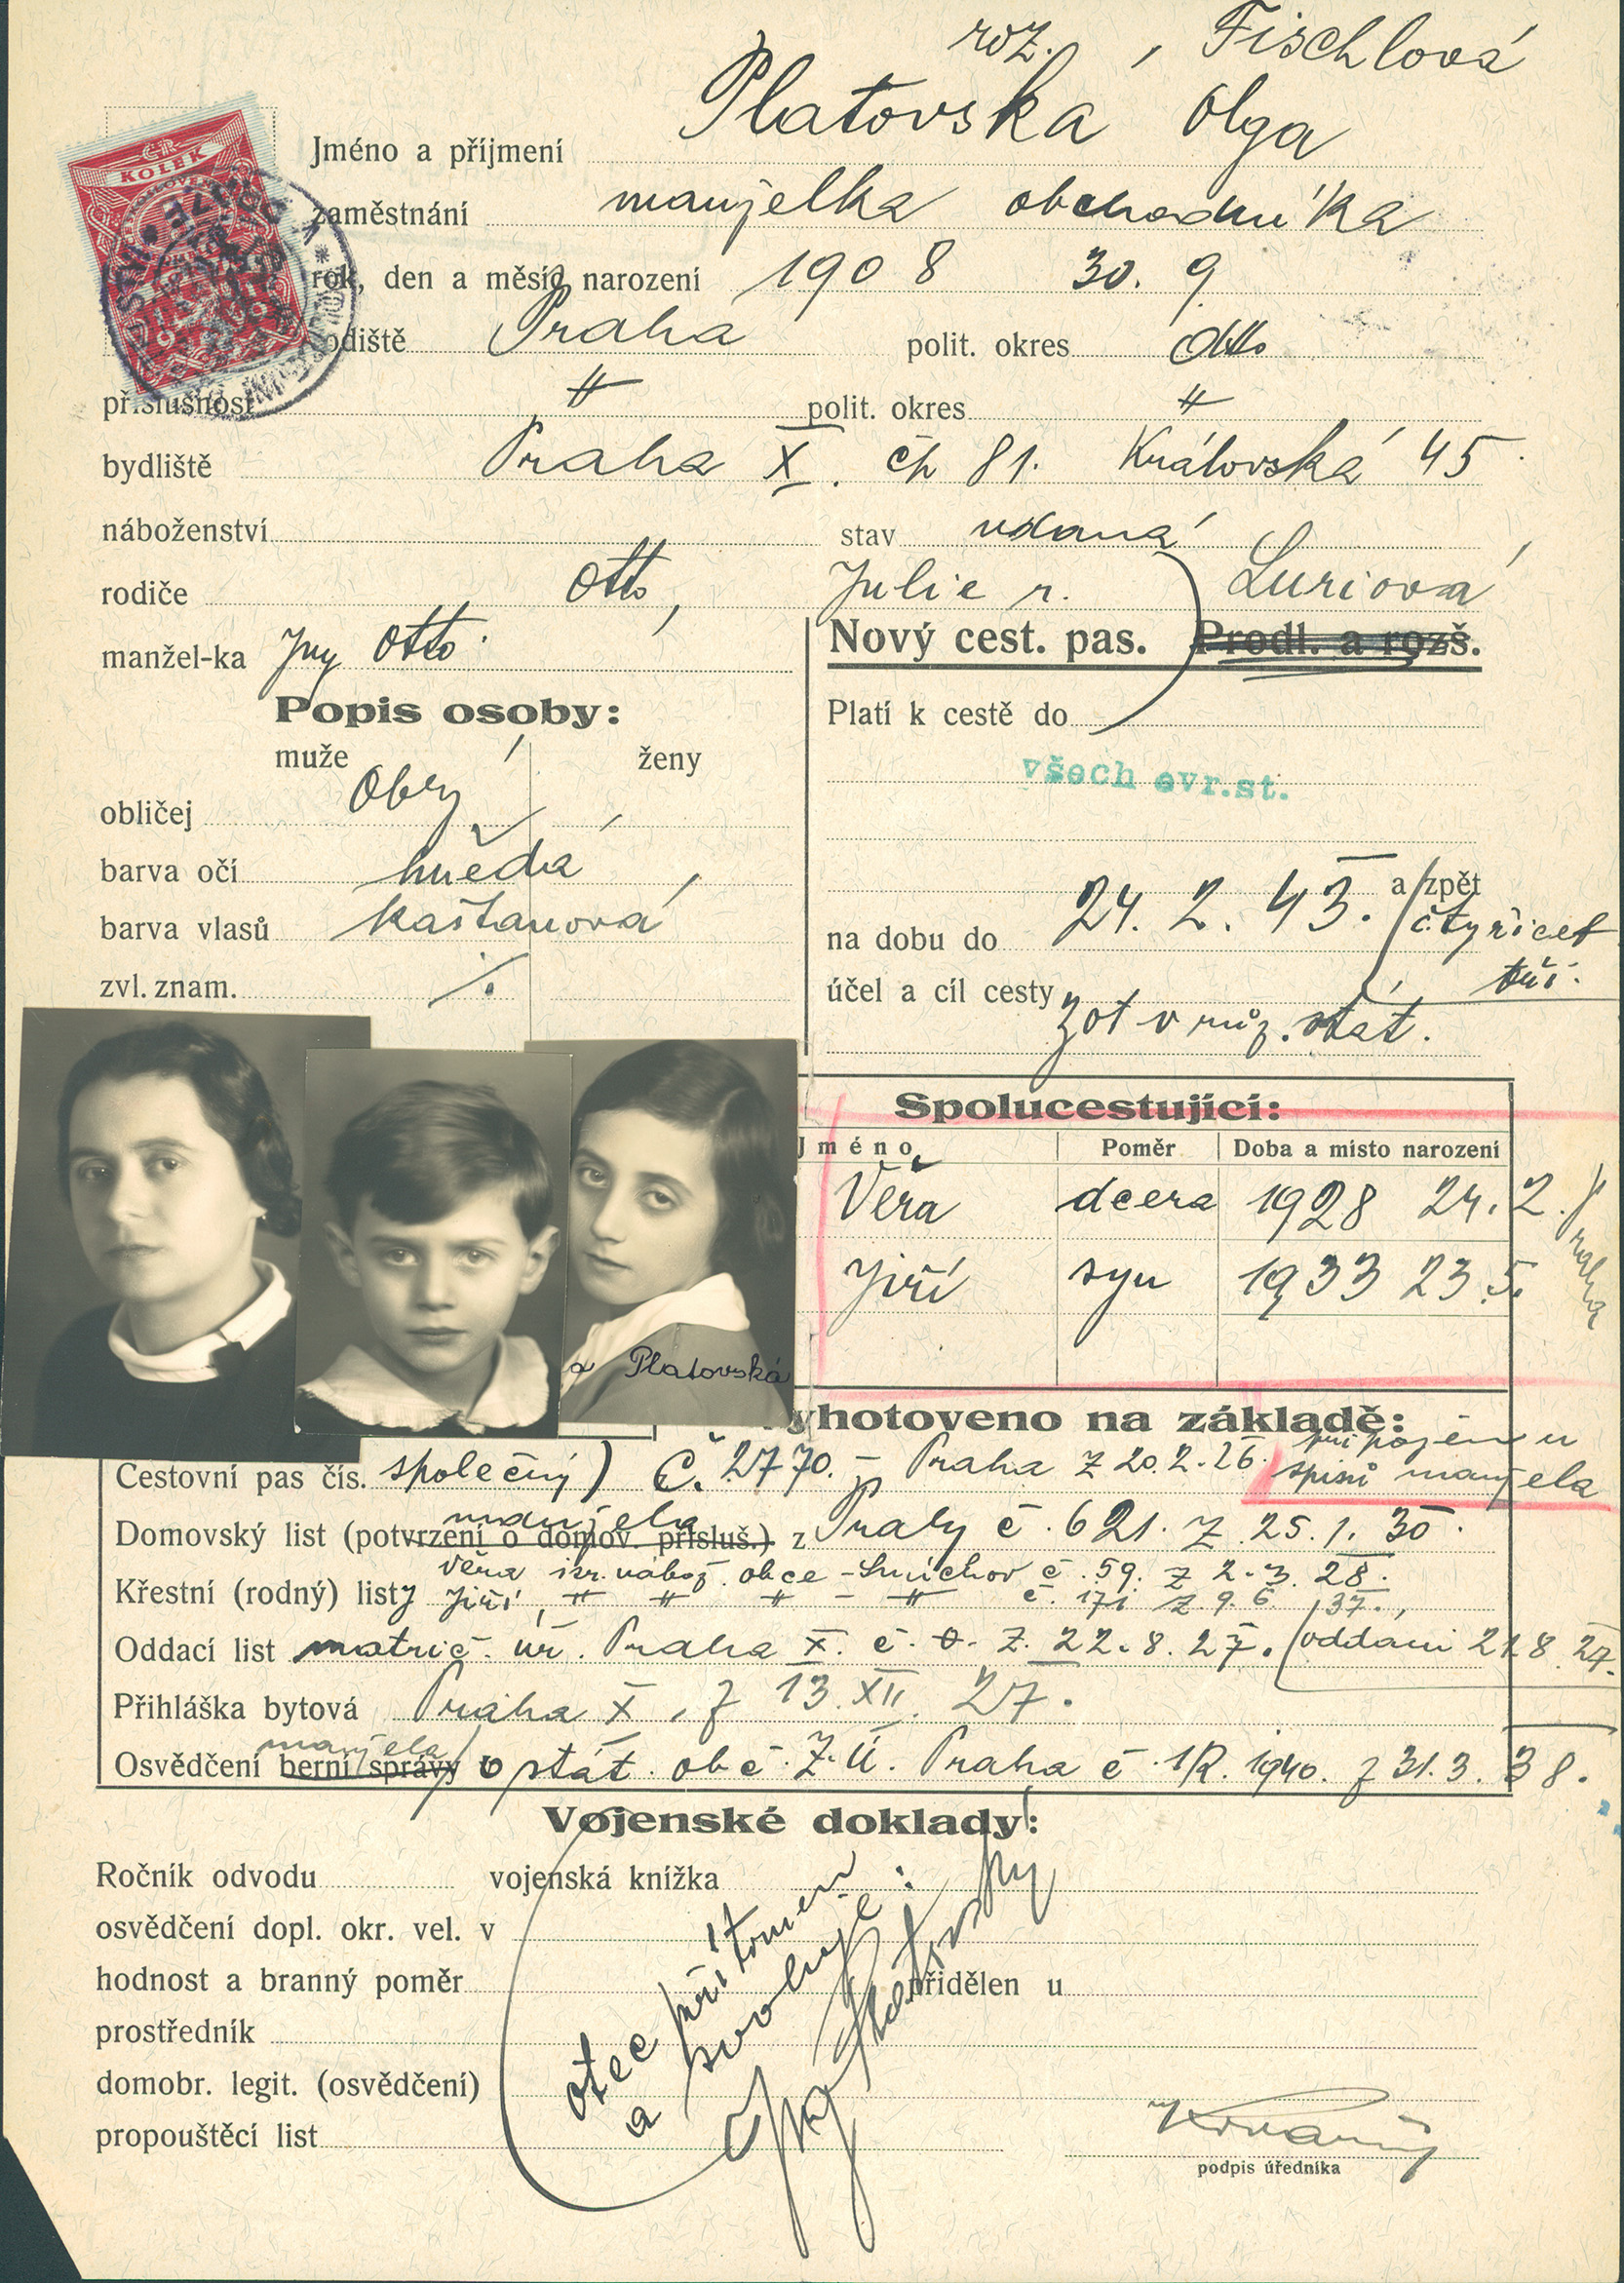 roz. Fischlová
Jméno a příjmení Platovska Olga
zaměstnání manželka obchodníka
rok, den a měsíc narození 1908 30. 9
odiště Praha polit. okres dtto
příslušnost " polit. okres "
bydliště Praha X. čp 81. Královská 45
náboženství stav vdaná
rodiče Otto, Julie r. Luriová
manžel-ka Ing Otto
Nový cest. pas. Prodl. a rozš.
Popis osoby:
muže ženy
obličej oblý
barva očí hnědá
barva vlasů kaštanová
zvl. znam. ./.
Platí k cestě do
všech evr.st.
a zpět
na dobu do 24. 2. 43. čtyřicet
tři.
účel a cíl cesty zot v růz. stát.
Spolucestující:
Jméno Poměr Doba a místo narození
Věra dcera 1928 24. 2. Praha
Jiří syn 1933 23 5.
a Platovská
yhotoveno na základě:
připojen u
Cestovní pas čís. společný) Č. 2770.- Praha z 20.2.26. spisů manžela
manžela
Domovský list (potvrzení o domov. přísluš.) z Prahy č. 621. z 25.1.30.
Věra isr. nábož. obce - Smíchov č. 59. z 2.3.28.
Křestní (rodný) listy Jiří, " " " - " č. 171 z 9.6.37.,
Oddací list matrič. úř. Praha X. č. 0. z. 22.8.27. (oddáni 21 8 27.
Přihláška bytová Praha X, z 13. XII. 27.
manžela
Osvědčení berní správy o stát. obč. Z.Ú. Praha č. 1R. 1940. z 31.3.38.
Vojenské doklady:
Ročník odvodu vojenská knížka
osvědčení dopl. okr. vel. v
hodnost a branný poměr přidělen u
prostředník
domobr. legit. (osvědčení)
propouštěcí list
otec přítomen
a svoluje:
Ing Platovský
podpis úředníka
KOLEK